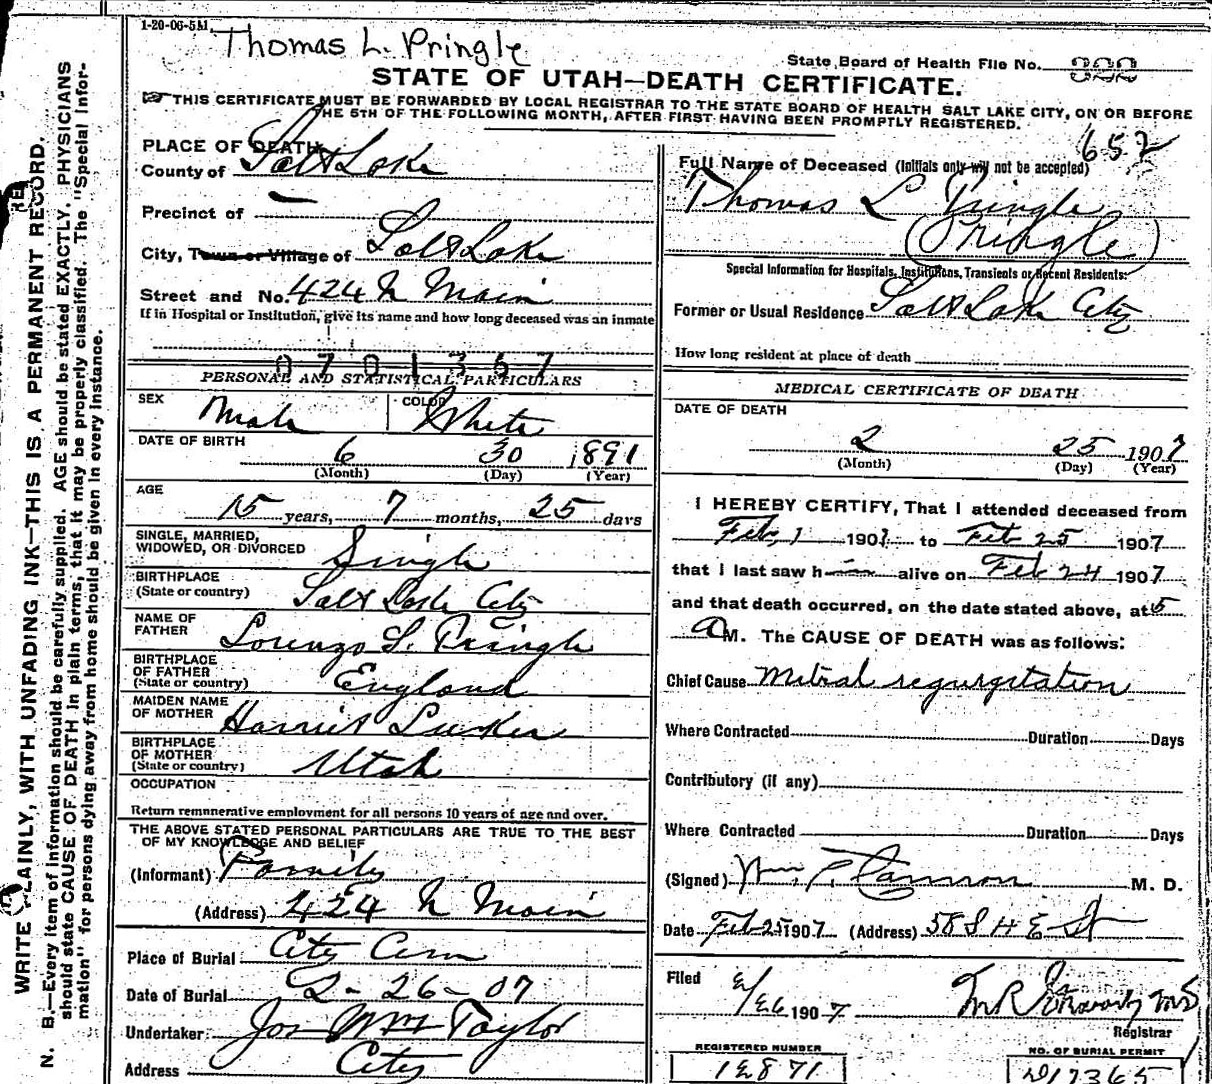 1-20-06-5M.
Thomas L. Pringle
State Board of Health File No. 322
STATE OF UTAH—DEATH CERTIFICATE.
THIS CERTIFICATE MUST BE FORWARDED BY LOCAL REGISTRAR TO THE STATE BOARD OF HEALTH SALT LAKE CITY, ON OR BEFORE
THE 5TH OF THE FOLLOWING MONTH, AFTER FIRST HAVING BEEN PROMPTLY REGISTERED.
WRITE PLAINLY, WITH UNFADING INK—THIS IS A PERMANENT RECORD.
N. B.—Every item of information should be carefully supplied. AGE should be stated EXACTLY. PHYSICIANS
should state CAUSE OF DEATH in plain terms, that it may be properly classified. The "Special Infor-
mation" for persons dying away from home should be given in every instance.
PLACE OF DEATH
County of Salt Lake
Precinct of —
City, Town or Village of Salt Lake
Street and No. 424 N Main
If in Hospital or Institution, give its name and how long deceased was an inmate
0701357
PERSONAL AND STATISTICAL PARTICULARS
SEX Male COLOR White
DATE OF BIRTH 6 30 1891
(Month) (Day) (Year)
AGE 15 years, 7 months, 25 days
SINGLE, MARRIED,
WIDOWED, OR DIVORCED Single
BIRTHPLACE
(State or country) Salt Lake City
NAME OF
FATHER Lorenzo S. Pringle
BIRTHPLACE
OF FATHER
(State or country) England
MAIDEN NAME
OF MOTHER Harriet
BIRTHPLACE
OF MOTHER
(State or country) Utah
OCCUPATION
Return remunerative employment for all persons 10 years of age and over.
THE ABOVE STATED PERSONAL PARTICULARS ARE TRUE TO THE BEST
OF MY KNOWLEDGE AND BELIEF
(Informant) Family
(Address) 424 N Main
Place of Burial City Cem
Date of Burial 2-26-07
Undertaker Jos Wm Taylor
Address City
652
Full Name of Deceased (Initials only will not be accepted)
Thomas L Pringle
(Pringle)
Special Information for Hospitals, Institutions, Transients or Recent Residents:
Former or Usual Residence Salt Lake City
How long resident at place of death
MEDICAL CERTIFICATE OF DEATH
DATE OF DEATH
2 25 1907
(Month) (Day) (Year)
I HEREBY CERTIFY, That I attended deceased from
Feb, 1 1907 to Feb 25 1907
that I last saw h im alive on Feb 24 1907
and that death occurred, on the date stated above, at 5
A M. The CAUSE OF DEATH was as follows:
Chief Cause Mitral regurgitation
Where Contracted Duration Days
Contributory (if any)
Where Contracted Duration Days
(Signed) Wm. M. D.
Date Feb 25 1907 (Address)
Filed 2/26 1907
Registrar
REGISTERED NUMBER
NO. OF BURIAL PERMIT